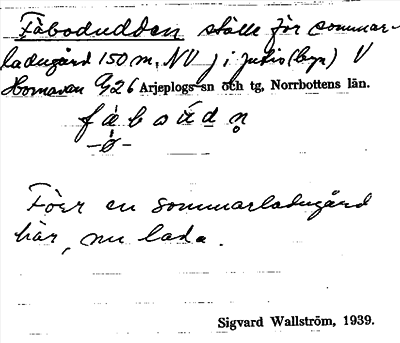 Fäbodudden ställe för sommar-
ladugård 150 m. NV j i Jutis (by) V
Hornavan G26 Arjeplogs sn och tg, Norrbottens län.
Förr en sommarladugård
här, nu lada.
Sigvard Wallström, 1939.